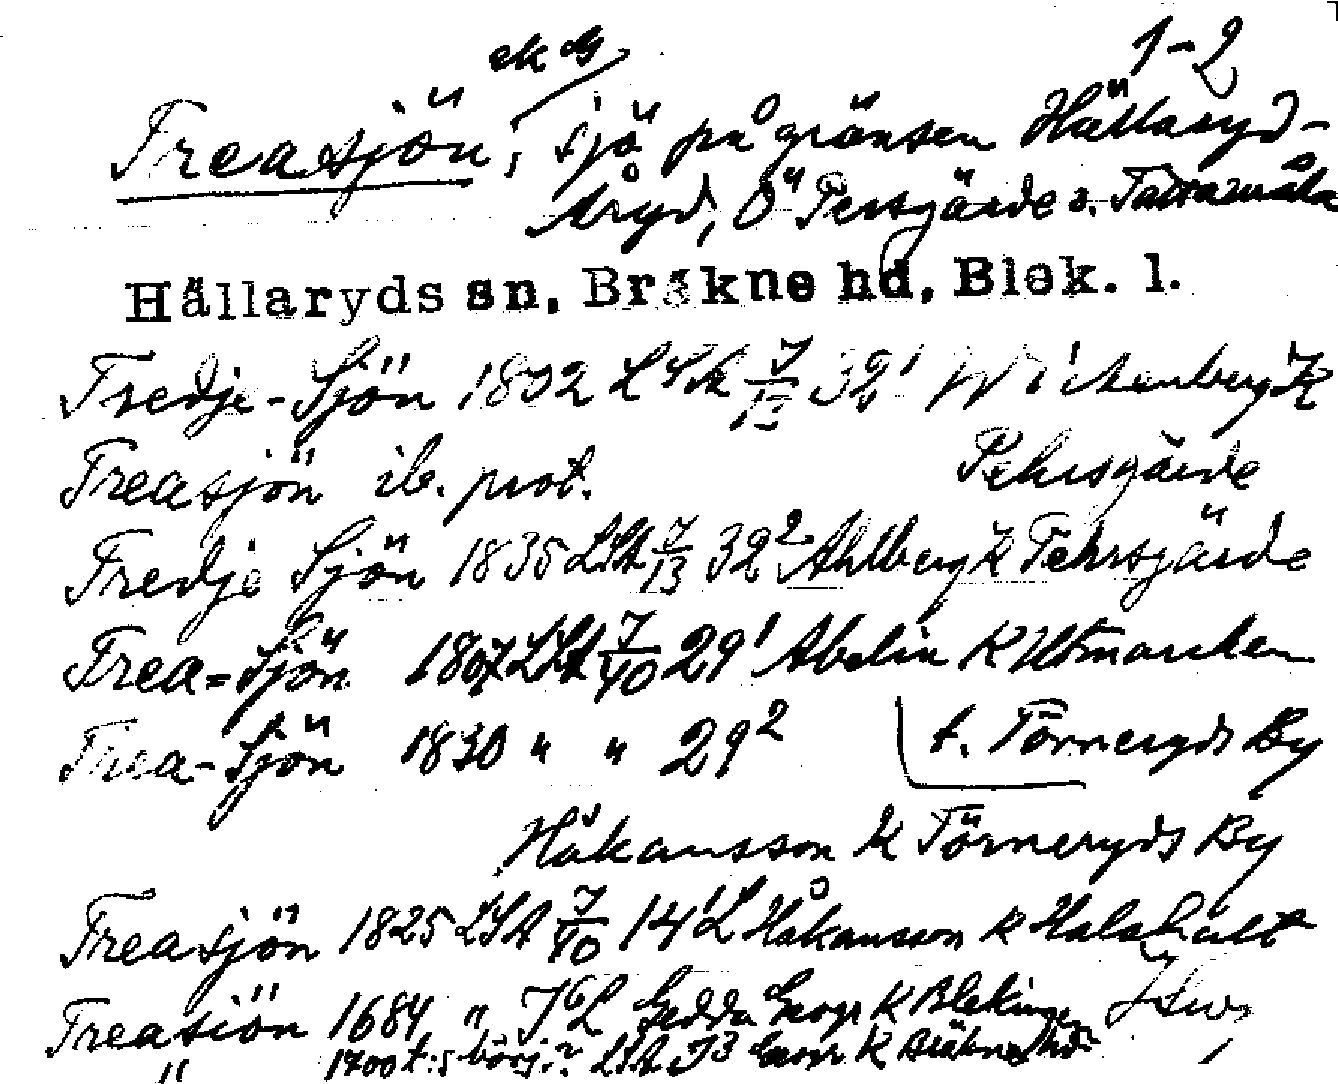 ek bl 1-2
Treasjön, sjö på gränsen Hällaryd-
Åryd, Ö Persgärde o. Tattamåla
Hällaryds sn, Bräkne hd, Blek. l.
Tredje-Sjön 1802 LSA 7/13 32¹ Wickenberg K
Treasjön ib. prot. Pehrsgärde
Tredje Sjön 1835 LSA 7/13 32² Ahlberg K Pehrsgärde
Trea=Sjön 1807 LSA 7/10 29¹ Abelin K Utmarken
Trea-Sjön 1830 " " 29² t. Törneryds By
Håkansson K Törneryds By
Treasjön 1825 LSA 7/10 14¹ L Håkansson K Halahult
Treasiön 1684 " J⁶L Gedda Geogr K Blekinge
" 1700 t:s börj.? LSA J3 Geogr K Bräkne hd